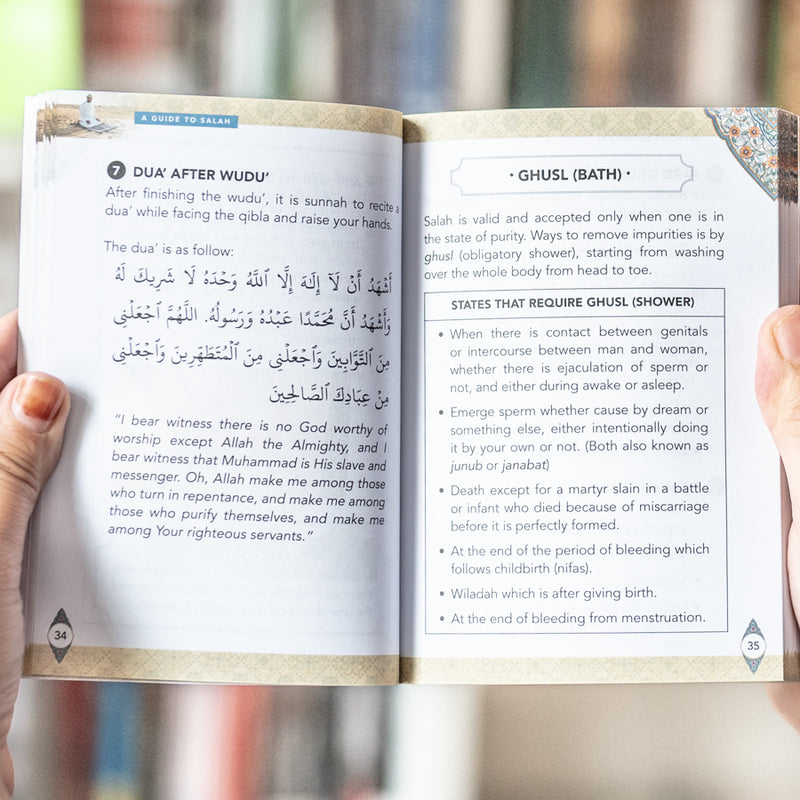 A GUIDE TO SALAH
7 DUA' AFTER WUDU'
After finishing the wudu', it is sunnah to recite a
dua' while facing the qibla and raise your hands.
The dua' is as follow:
أَشْهَدُ أَنْ لَآ إِلَـٰهَ إِلَّا ٱللَّهُ وَحْدَهُ لَا شَرِيكَ لَهُ
وَأَشْهَدُ أَنَّ مُحَمَّدًا عَبْدُهُ وَرَسُولُهُ. اللَّهُمَّ اجْعَلْنِى
مِنَ التَّوَّابِينَ وَاجْعَلْنِى مِنَ الْمُتَطَهِّرِينَ وَاجْعَلْنِى
مِنْ عِبَادِكَ الصَّالِحِينَ
"I bear witness there is no God worthy of
worship except Allah the Almighty, and I
bear witness that Muhammad is His slave and
messenger. Oh, Allah make me among those
who turn in repentance, and make me among
those who purify themselves, and make me
among Your righteous servants."
34
• GHUSL (BATH) •
Salah is valid and accepted only when one is in
the state of purity. Ways to remove impurities is by
ghusl (obligatory shower), starting from washing
over the whole body from head to toe.
STATES THAT REQUIRE GHUSL (SHOWER)
• When there is contact between genitals
or intercourse between man and woman,
whether there is ejaculation of sperm or
not, and either during awake or asleep.
• Emerge sperm whether cause by dream or
something else, either intentionally doing
it by your own or not. (Both also known as
junub or janabat)
• Death except for a martyr slain in a battle
or infant who died because of miscarriage
before it is perfectly formed.
• At the end of the period of bleeding which
follows childbirth (nifas).
• Wiladah which is after giving birth.
• At the end of bleeding from menstruation.
35